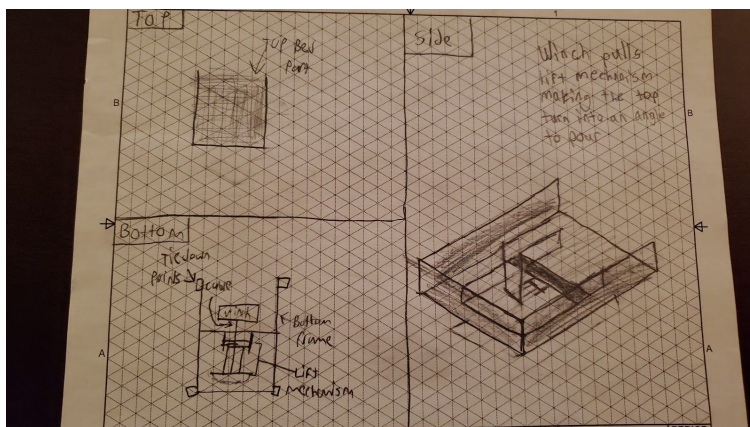 Top
Top Bed
Part
Side
Winch pulls
lift mechanism
making the top
turn into an angle
to pour
B
B
Bottom
Tie down
points
Bottom
frame
Lift
mechanism
A
A